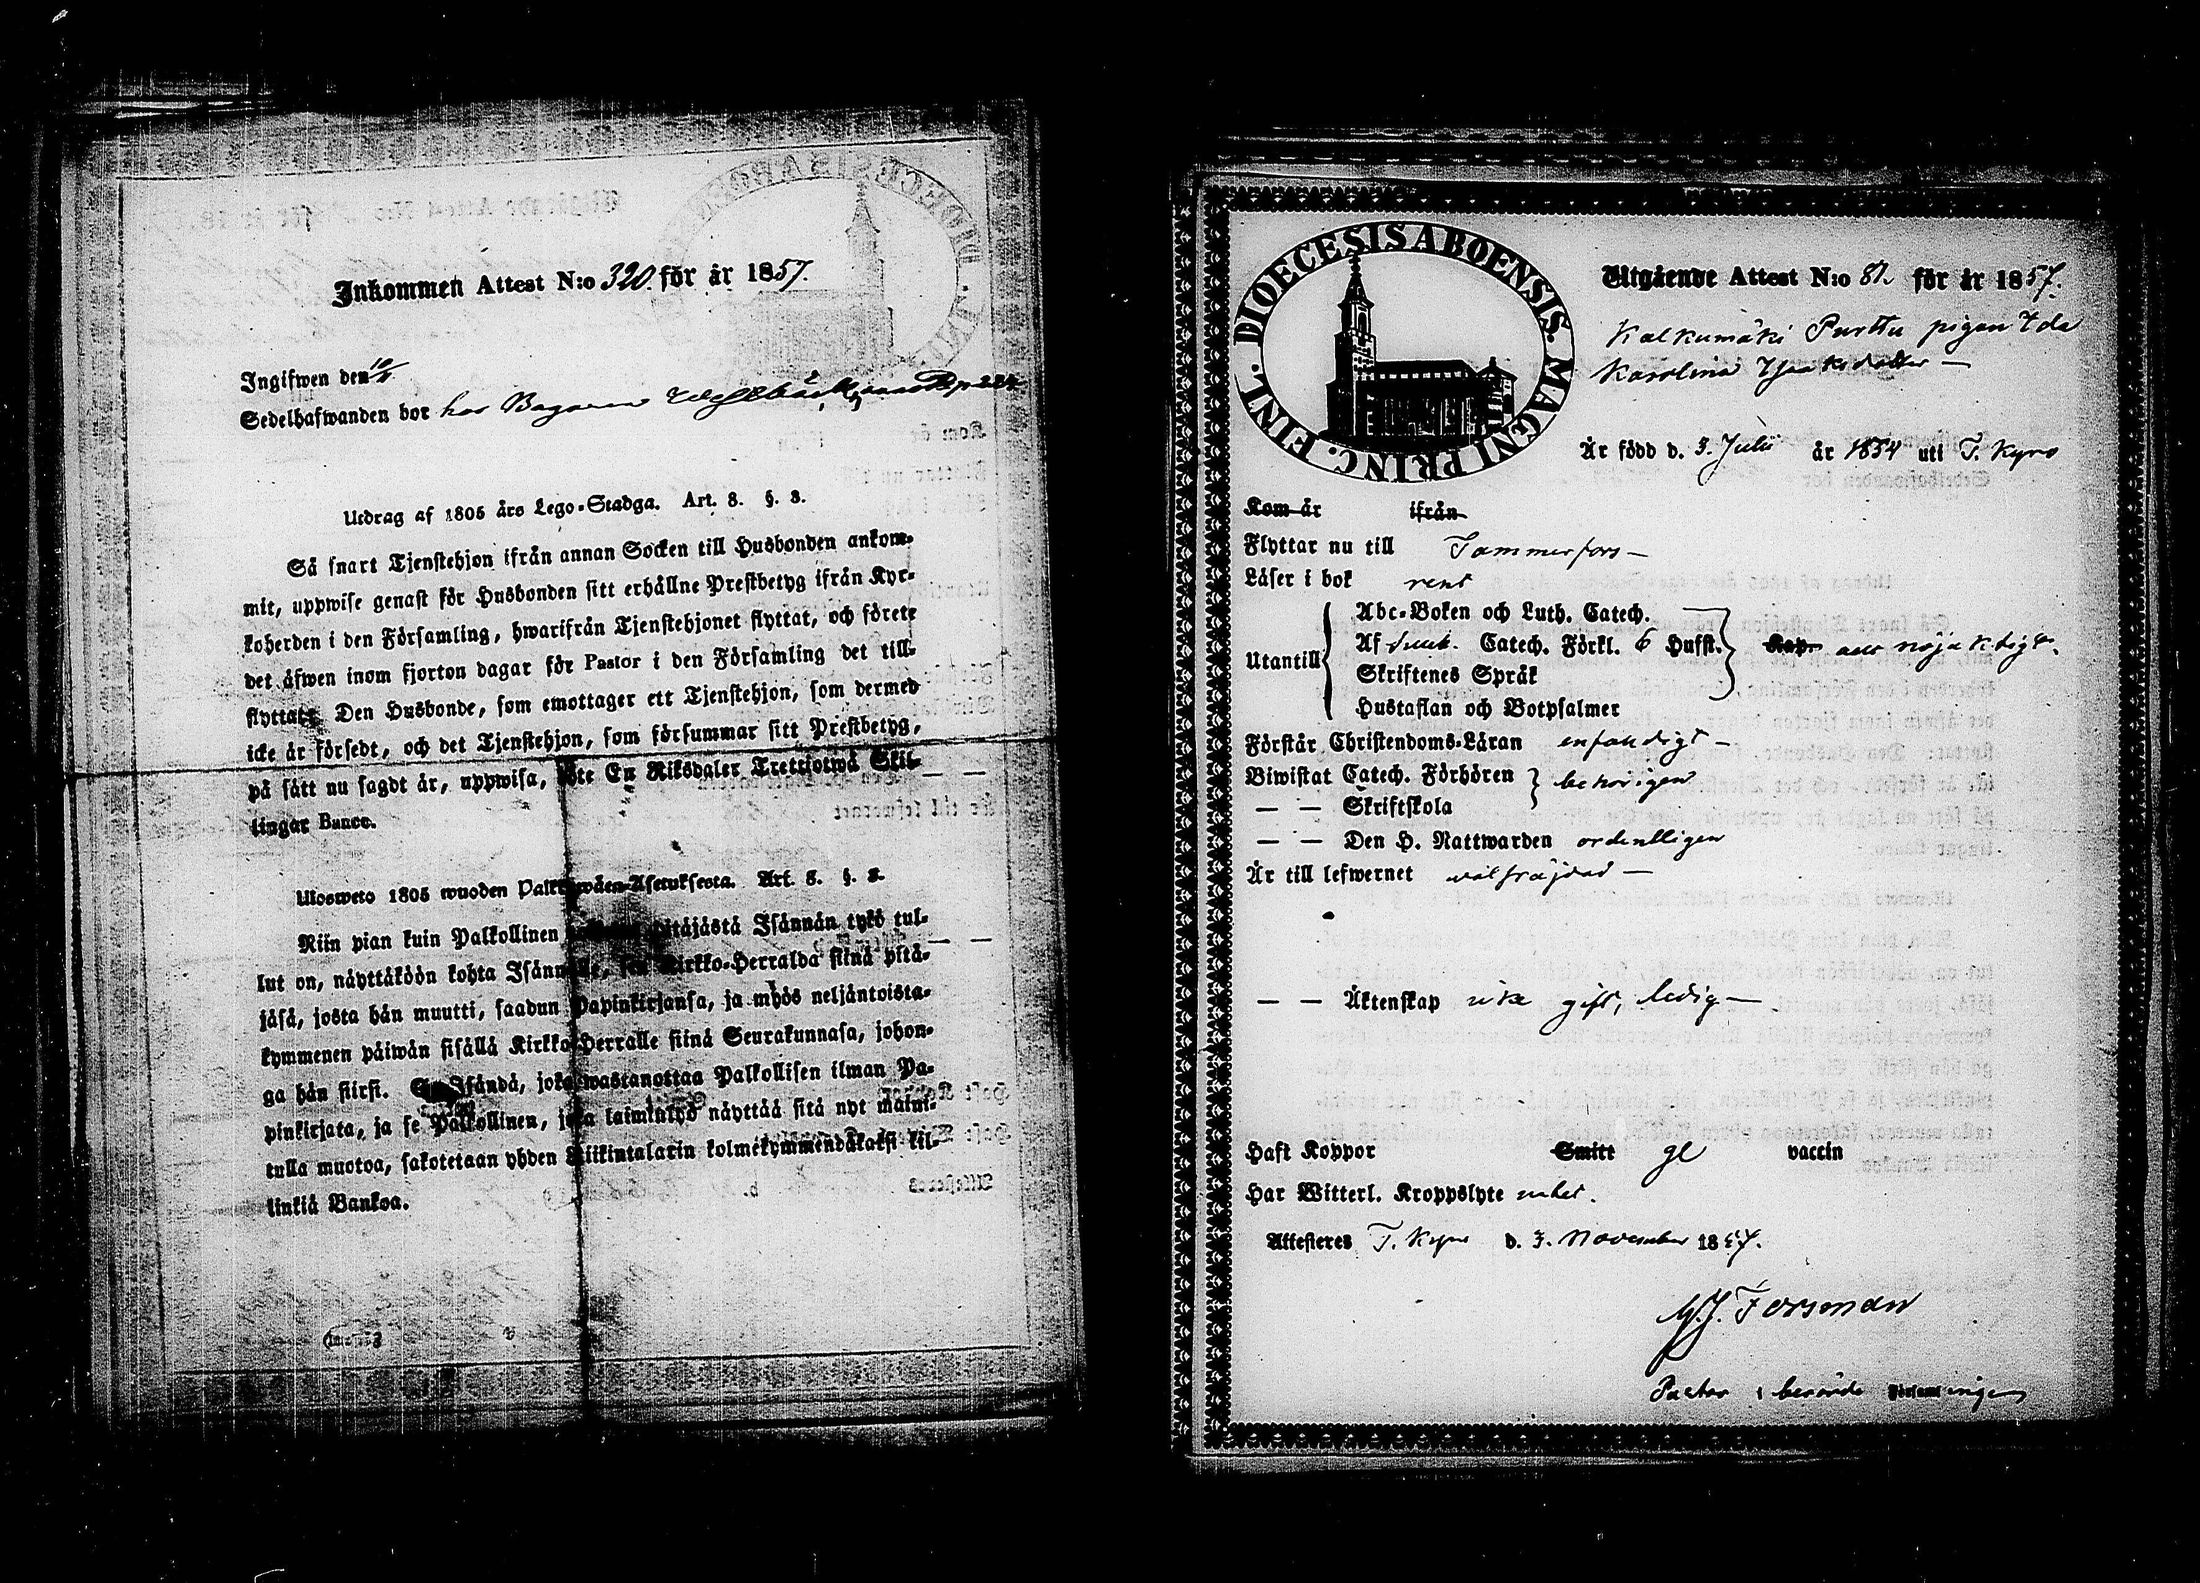 Inkommen Attest N:o 320. för år 1857.
Ingifwen den 10/11
Sedelhafwanden bor hos Bagaren
Utdrag af 1805 års Lego-Stadga. Art. 8. §. 3.
Så snart Tjenstehjon ifrån annan Socken till Husbonden ankom-
mit, uppwise genast för Husbonden sitt erhållne Prestbetyg ifrån Kyr-
koherden i den Församling, hwarifrån Tjenstehjonet flyttat, och förete
det äfwen inom fjorton dagar för Pastor i den Församling det till-
flyttat. Den Husbonde, som emottager ett Tjenstehjon, som dermed
icke är försedt, och det Tjenstehjon, som försummar sitt Prestbetyg,
på sätt nu sagdt är, uppwisa, böte En Riksdaler Trettiotwå Skil-
lingar Banco.
Ulosweto 1805 wuoden Palkkawäen-Asetuksesta. Art. 8. §. 3.
Niin pian kuin Palkollinen pitäjästä Isännän tykö tul-
lut on, näyttäköön kohta Isännälle, sen Kirkko-Herralda siinä pitä-
jäsä, josta hän muutti, saadun Papinkirjansa, ja myös neljäntoista-
kymmenen päiwän sisällä Kirkko-Herralle siinä Seurakunnasa, johon-
ga hän siirsi. Se Isändä, joka wastanottaa Palkollisen ilman Pa-
pinkirjata, ja se Palkollinen, joka laiminlyö näyttää sitä nyt maini-
tulla muotoa, sakotetaan yhden Riikintalarin kolmekymmendäkaksi kil-
linkiä Bankoa.
DIOECESIS ABOENSIS. MAGNI PRINC. FINL.
Utgående Attest N:o 81. för år 1857.
Kalkumäki Purttu pigan Ida
Karolina Isaksdotter —
Är född d. 3. Julii år 1834 uti T. Kyro
Kom år ifrån
Flyttar nu till Tammerfors —
Läser i bok rent
Abc-Boken och Luth. Catech.
Utantill Af Catech. Förkl. 6 Hufst. nöjaktigt.
Skriftenes Språk
Hustaflan och Botpsalmer
Förstår Christendoms-Läran enfaldigt —
Biwistat Catech. Förhören behörigen
— — Skriftskola
— — Den H. Nattwarden ordentligen
Är till lefwernet välfräjdad —
— — Äktenskap icke gift, ledig —
Haft Koppor Smitt vaccin
Har Witterl. Kroppslyte intet.
Attesteres T. Kyro d. 3. November 1857.
Forsman
Pastor i berörde Församlingen